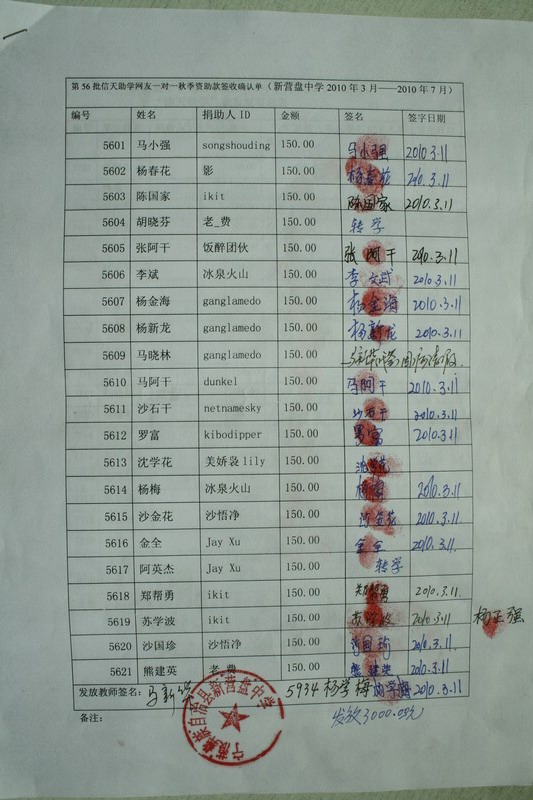 第 56 批信天助学网友一对一秋季资助款签收确认单（新营盘中学 2010 年 3 月——2010 年 7 月）
编号 姓名 捐助人 ID 金额 签名 签字日期
5601 马小强 songshouding 150.00 马小强 2010.3.11
5602 杨春花 影 150.00 杨春花 2010.3.11
5603 陈国家 ikit 150.00 陈国家 2010.3.11
5604 胡晓芬 老_费 150.00 转学
5605 张阿干 饭醉团伙 150.00 张阿干 2010.3.11
5606 李斌 冰泉火山 150.00 李文武 2010.3.11
5607 杨金海 ganglamedo 150.00 杨金海 2010.3.11
5608 杨新龙 ganglamedo 150.00 杨新龙 2010.3.11
5609 马晓林 ganglamedo 150.00
5610 马阿干 dunkel 150.00 马阿干 2010.3.11
5611 沙石干 netnamesky 150.00 沙石干 2010.3.11
5612 罗富 kibodipper 150.00 罗富 2010.3.11
5613 沈学花 美娇袅 lily 150.00 沈学花
5614 杨梅 冰泉火山 150.00 杨梅 2010.3.11
5615 沙金花 沙悟净 150.00 沙金花 2010.3.11.
5616 金全 Jay Xu 150.00 金全 2010.3.11.
5617 阿英杰 Jay Xu 150.00 转学
5618 郑帮勇 ikit 150.00 郑帮勇 2010.3.11.
5619 苏学波 ikit 150.00 苏学波 2010.3.11 杨正强
5620 沙国珍 沙悟净 150.00 2010.3.11.
5621 熊建英 老_费 150.00 熊建英 2010.3.11
发放教师签名： 5934 杨学梅 杨学梅 2010.3.11
备注： 发放3000.00元
宁蒗彝族自治县新营盘中学